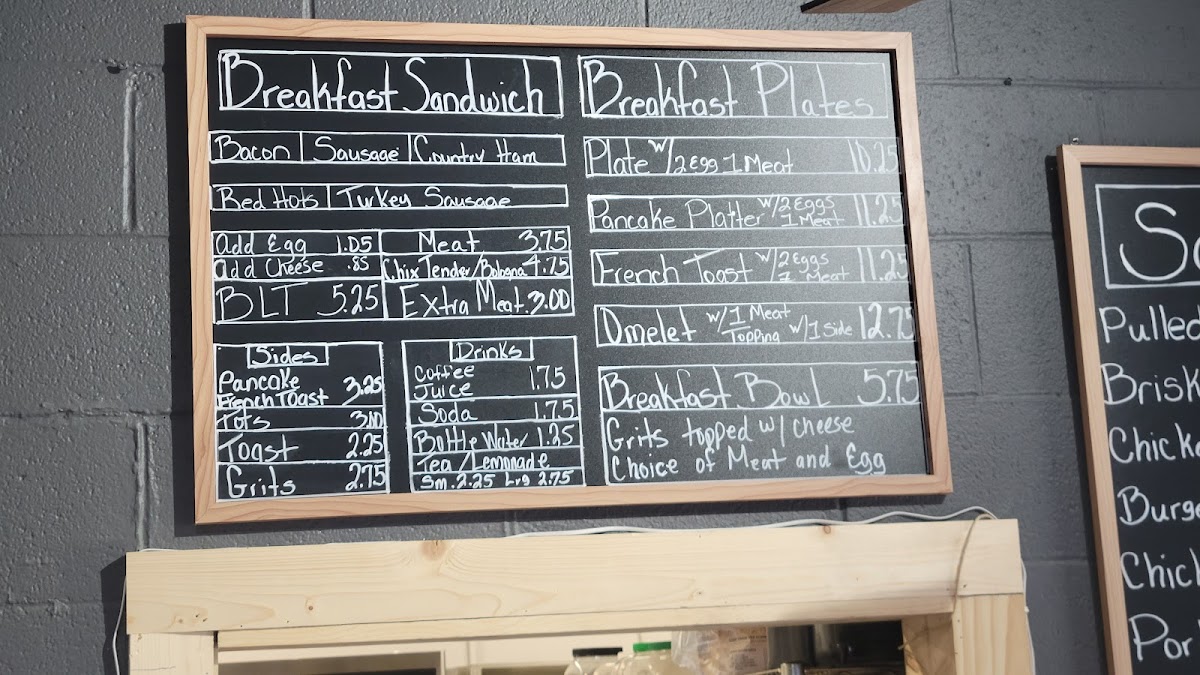 Breakfast Sandwich
Bacon Sausage Country Ham
Red Hots Turkey Sausage
Add Egg 1.05
Add Cheese .85
BLT 5.25
Meat 3.75
Chix Tender/Bologna 4.75
Extra Meat 3.00
Sides
Pancake
French Toast 3.25
Tots 3.00
Toast 2.25
Grits 2.75
Drinks
Coffee
Juice 1.75
Soda 1.75
Bottle Water 1.25
Tea/Lemonade
Sm. 2.25 Lrg 2.75
Breakfast Plates
Plate w/2 Egg 1 Meat 10.25
Pancake Platter w/2 Eggs 1 Meat 11.25
French Toast w/2 Eggs 1 Meat 11.25
Omelet w/1 Meat Topping w/1 Side 12.75
Breakfast Bowl 5.75
Grits topped w/ cheese
Choice of Meat and Egg